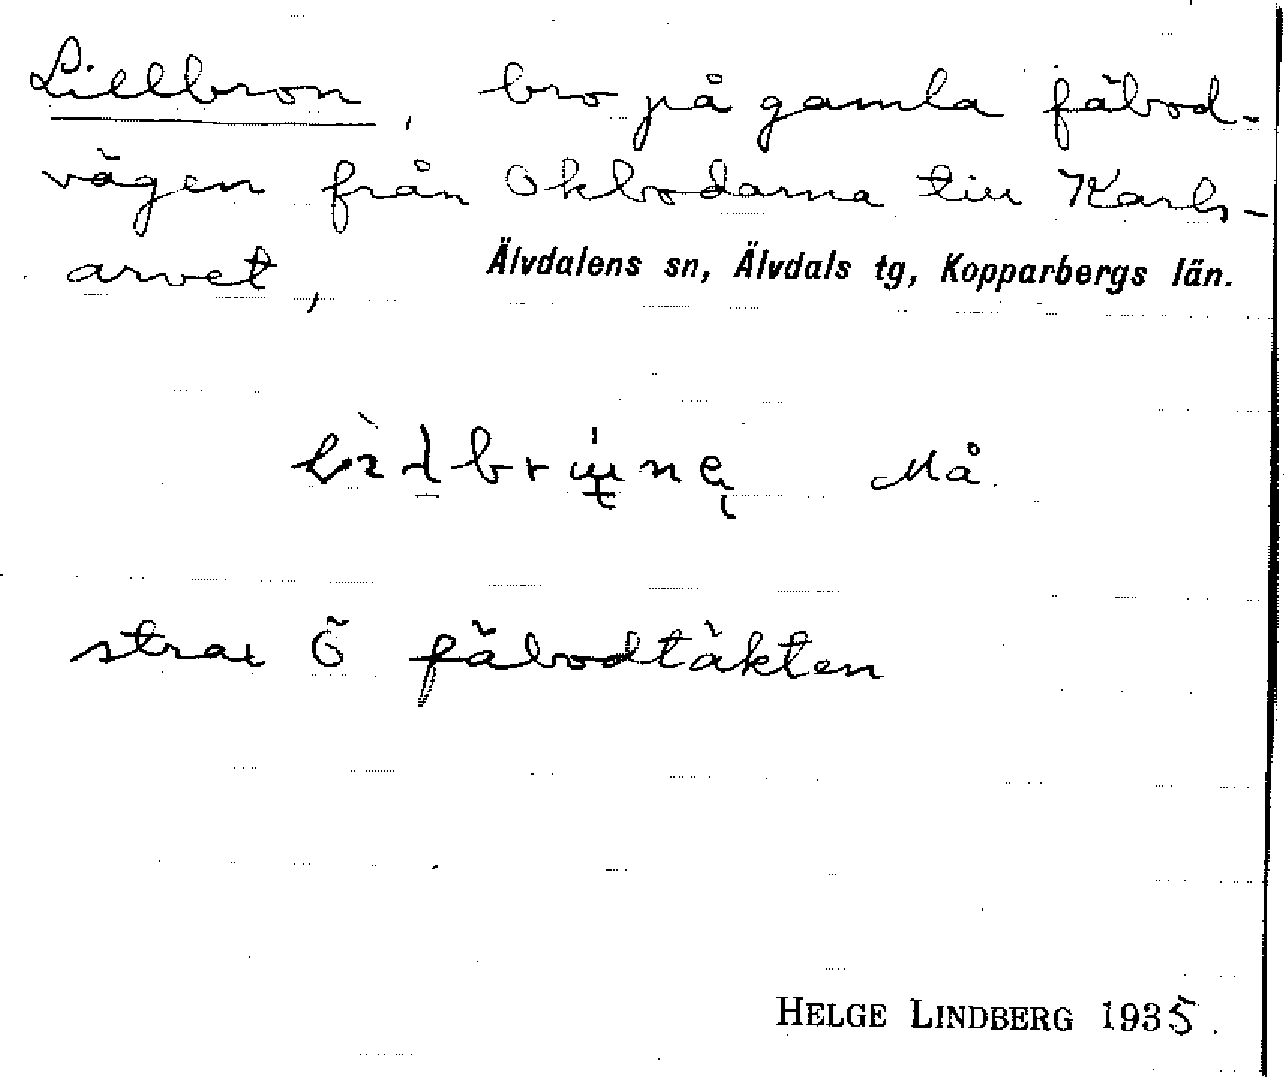 Lillbron, bro på gamla fäbod-
vägen från Okbodarna till Karls-
arvet, Älvdalens sn, Älvdals tg, Kopparbergs län.
Må
strax Ö fäbodtäkten
HELGE LINDBERG 1935.